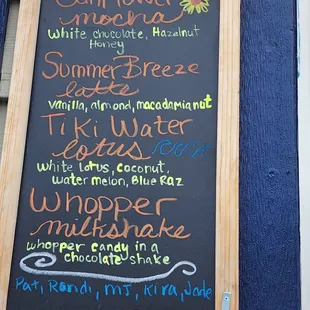 Sunflower
mocha
White chocolate, Hazelnut
Honey
Summer Breeze
latte
Vanilla, almond, macadamia nut
Tiki Water
lotus
White lotus, coconut,
water melon, Blue Raz
Whopper
milkshake
whopper candy in a
chocolate shake
Pat, Randi, MJ, Kira, Jade